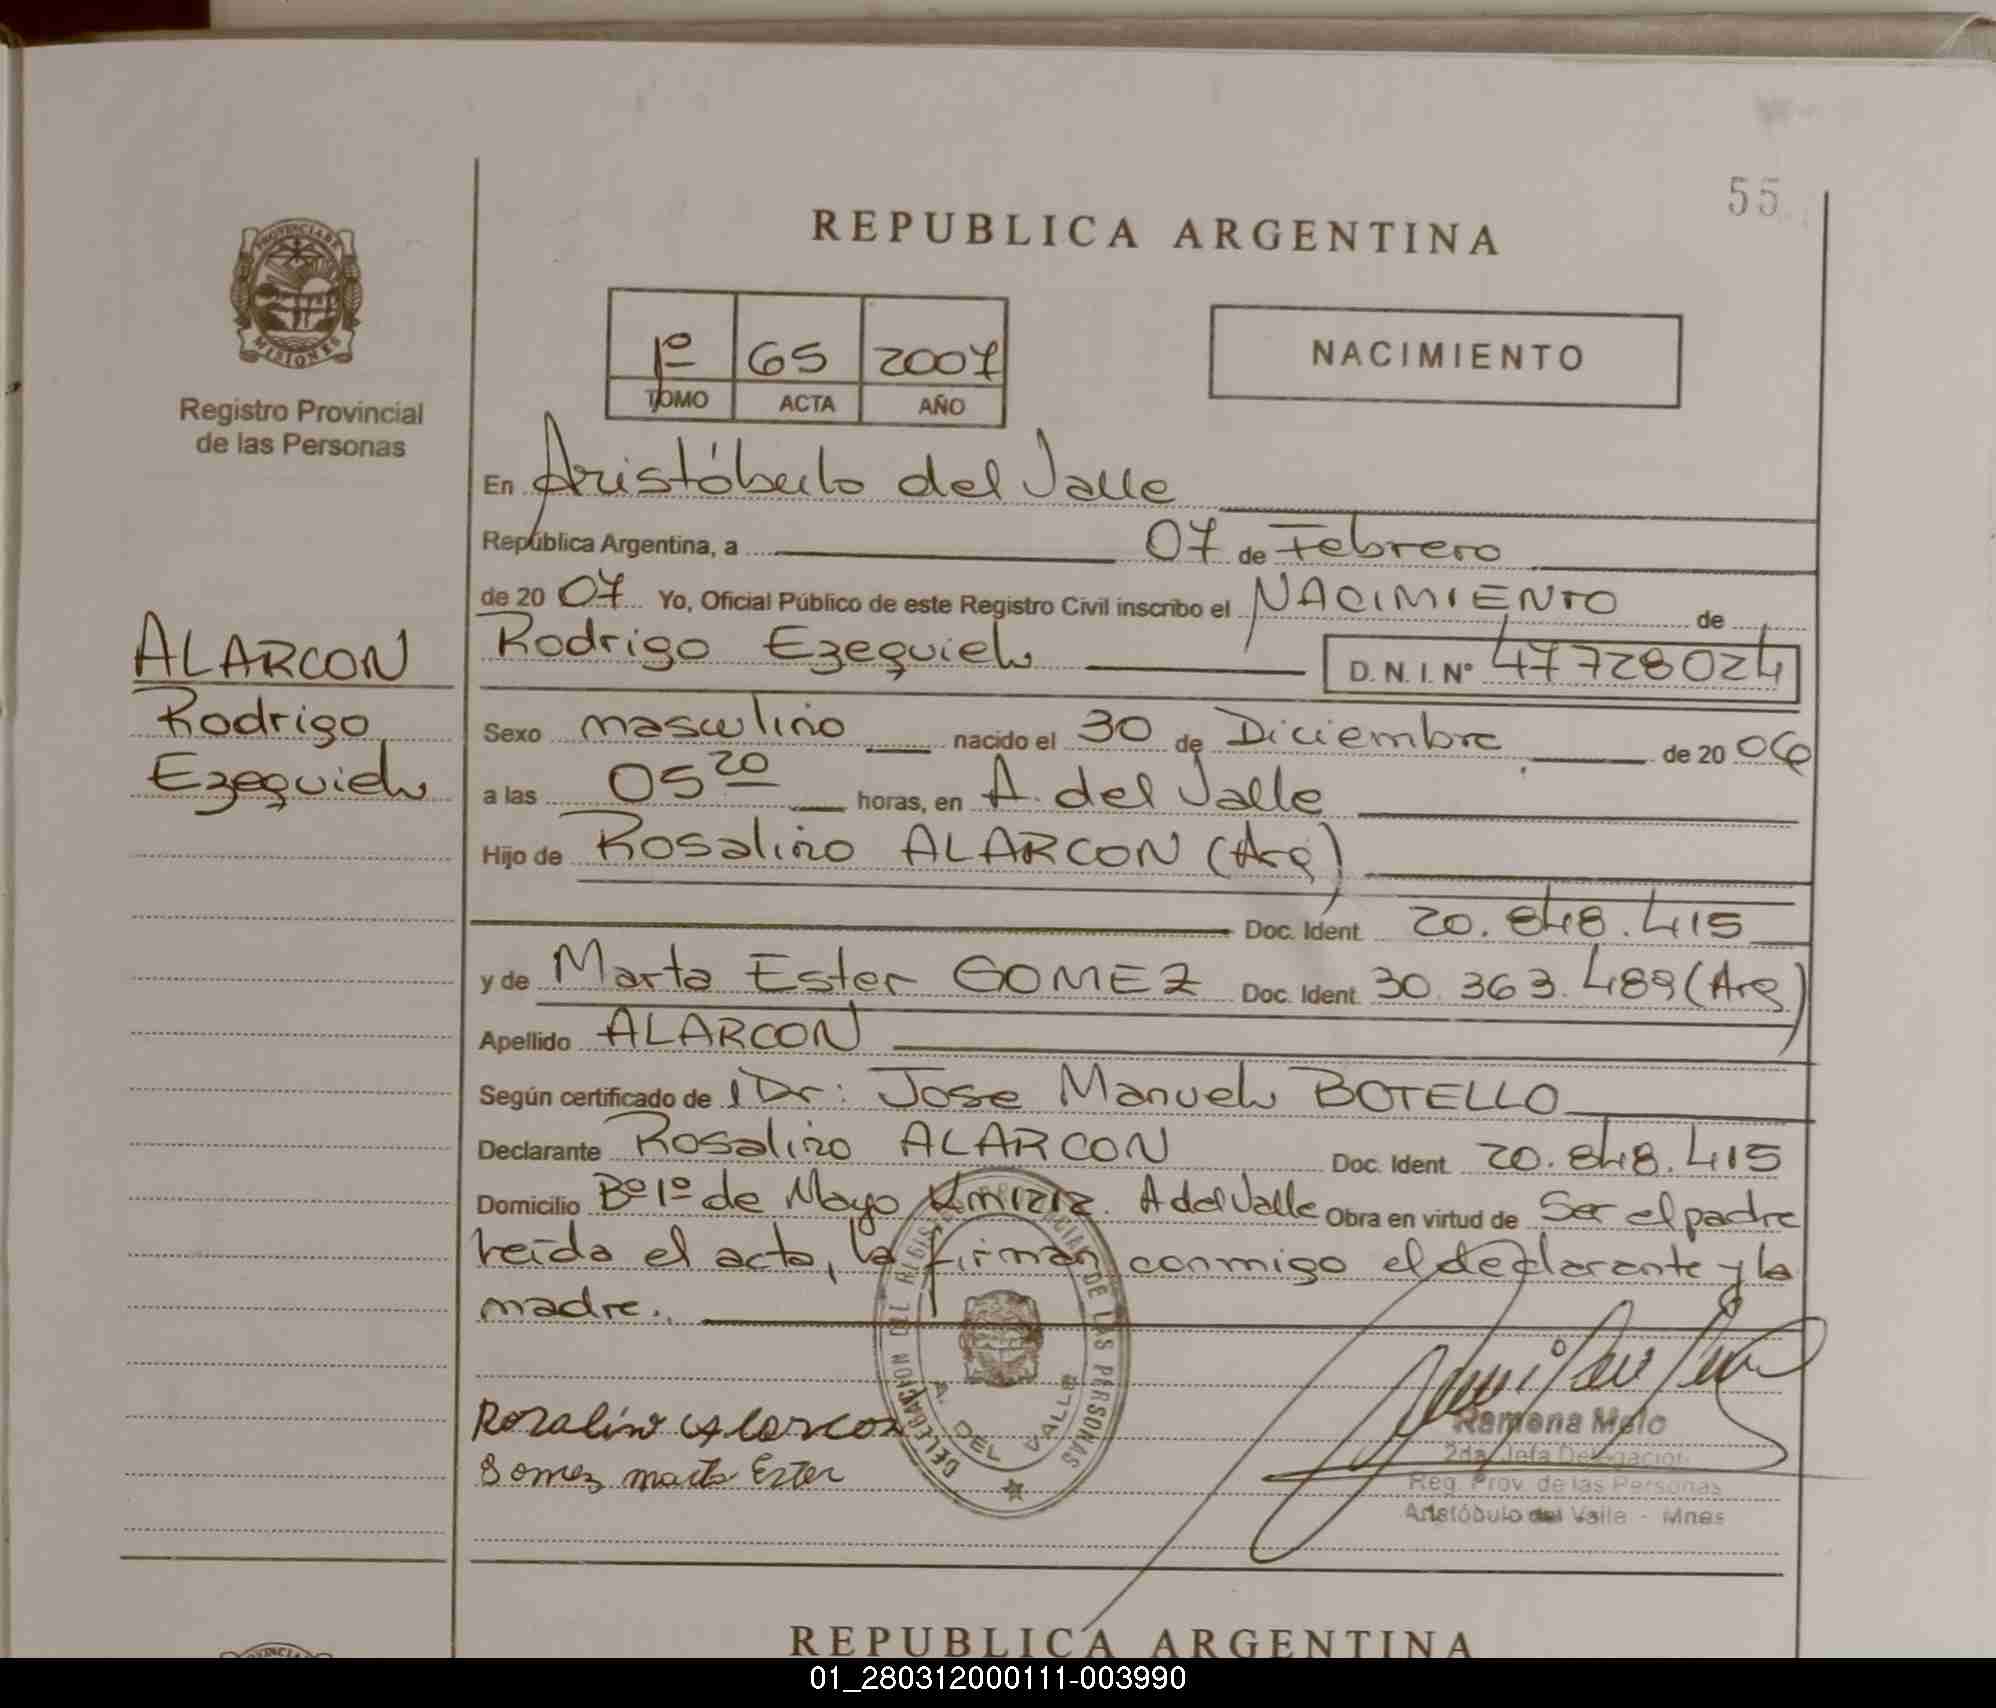 55
REPUBLICA ARGENTINA
PROVINCIA DE
MISIONES
Registro Provincial
de las Personas
1º 65 2007
TOMO ACTA AÑO
NACIMIENTO
En Aristóbulo del Valle
República Argentina, a 07 de Febrero
de 20 07 Yo, Oficial Público de este Registro Civil inscribo el NACIMIENTO de
Rodrigo Ezequiel D.N.I.Nº 47728024
ALARCON
Rodrigo
Ezequiel
Sexo masculino nacido el 30 de Diciembre de 20 06
a las 05 20 horas, en A. del Valle
Hijo de Rosalino ALARCON (Arg)
Doc. Ident. 20.848.415
y de Marta Ester GOMEZ Doc. Ident. 30.363.489 (Arg)
Apellido ALARCON
Según certificado de Dr: Jose Manuel BOTELLO
Declarante Rosalino ALARCON Doc. Ident. 20.848.415
Domicilio Bº 1º de Mayo Km 1212. A del Valle Obra en virtud de Ser el padre
leída el acta, la firman conmigo el declarante y la
madre.
DELEGACION DEL REGISTRO PROVINCIAL DE LAS PERSONAS
A. DEL VALLE
Rozalino Alarcon
Gomez marta Ester
Ramona Melo
2da. Jefa Delegación
Reg. Prov. de las Personas
Aristóbulo del Valle - Mnes
REPUBLICA ARGENTINA
01_280312000111-003990